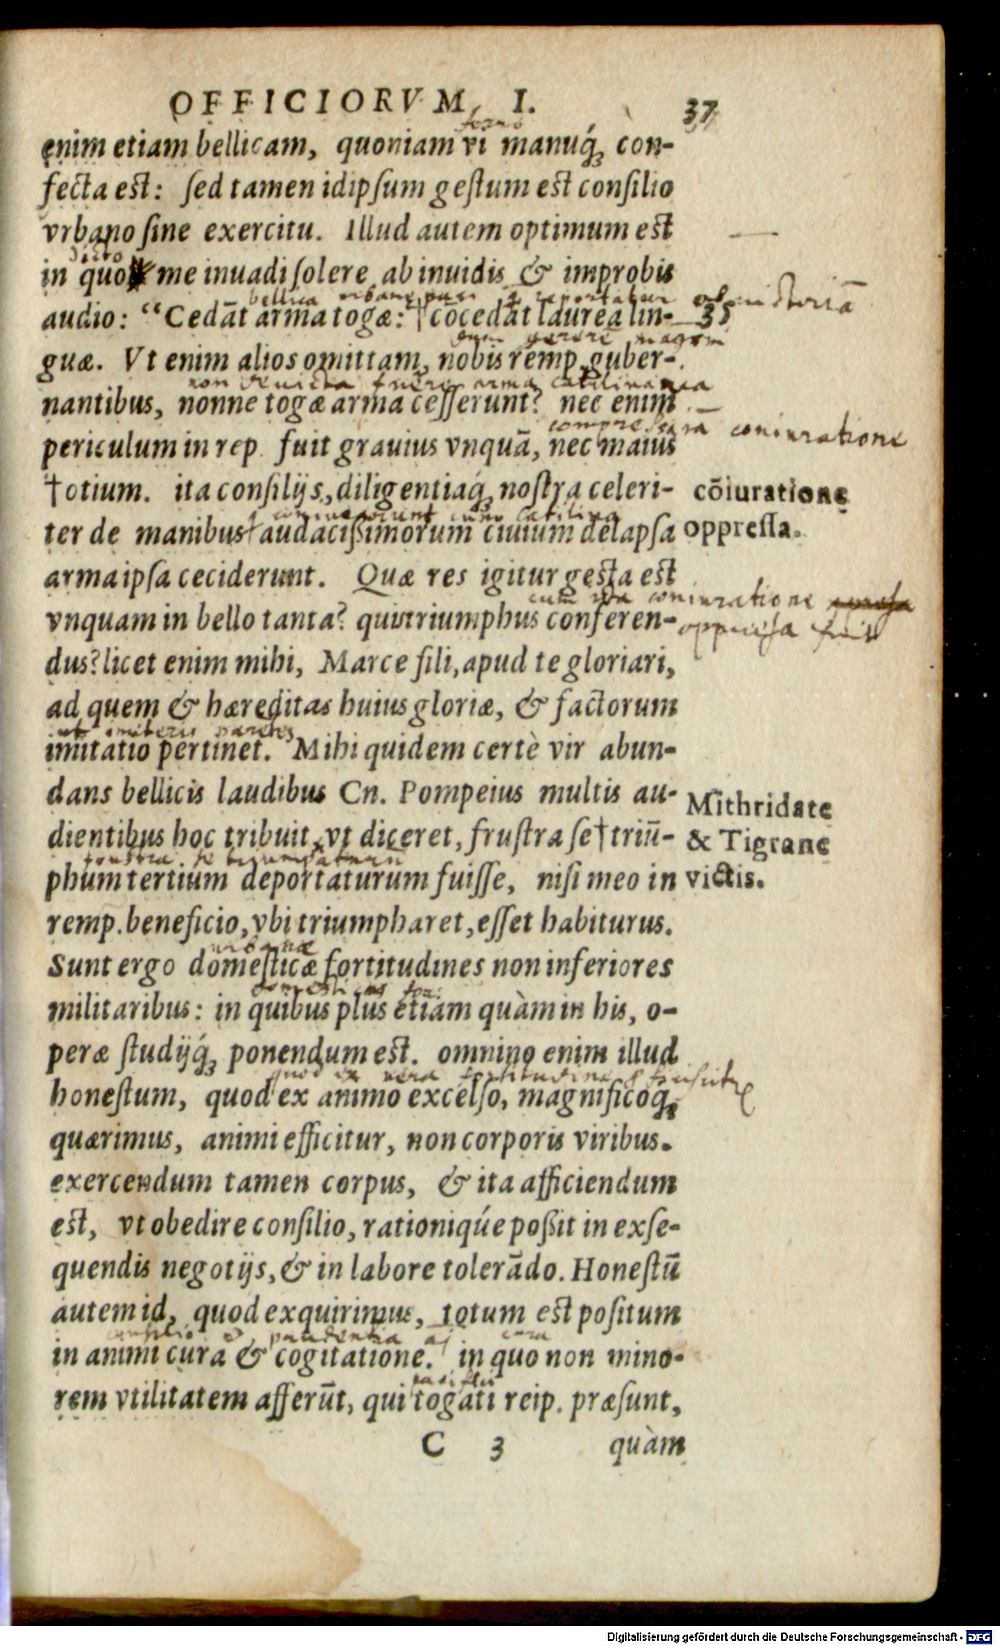 OFFICIORVM I. 37
enim etiam bellicam, quoniam vi manuq́; con-
fecta est: sed tamen id ipsum gestum est consilio
vrbano sine exercitu. Illud autem optimum est
dicto
in quo me inuadi solere ab inuidis & improbis
bellica
victoriā
audio: “Cedāt arma togæ: †cōcedat laurea lin- 35
guæ. Vt enim alios omittam, nobis remp. guber-
non deuicta fuere arma catilinaria
nantibus, nonne togæ arma cesserunt? nec enim
coniuratione
periculum in rep. fuit grauius vnquā, nec maius
†otium. ita consilijs, diligentiaq́; nostra celeri- cōiuratione
ter de manibus† audacissimorum ciuium delapsa oppressa.
arma ipsa ceciderunt. Quæ res igitur gesta est
coniuratione
vnquam in bello tanta? qui triumphus conferen-
oppressa fuit
dus? licet enim mihi, Marce fili, apud te gloriari,
ad quem & hæreditas huius gloriæ, & factorum
imitatio pertinet. Mihi quidem certè vir abun-
dans bellicis laudibus Cn. Pompeius multis au- Mithridate
dientibus hoc tribuit, vt diceret, frustra se †triū- & Tigrane
phum tertium deportaturum fuisse, nisi meo in victis.
remp. beneficio, vbi triumpharet, esset habiturus.
urbanæ
Sunt ergo domesticæ fortitudines non inferiores
militaribus: in quibus plus etiam quàm in his, o-
peræ studijq́; ponendum est. omnino enim illud
quod ex vera fortitudine
honestum, quod ex animo excelso, magnificoq́;
quærimus, animi efficitur, non corporis viribus.
exercendum tamen corpus, & ita afficiendum
est, vt obedire consilio, rationiq́ue possit in exse-
quendis negotijs, & in labore tolerādo. Honestū
autem id, quod exquirimus, totum est positum
consilio & prudentia
cura
in animi cura & cogitatione. in quo non mino-
rem vtilitatem afferūt, qui togati reip. præsunt,
C 3 quàm
Digitalisierung gefördert durch die Deutsche Forschungsgemeinschaft - DFG